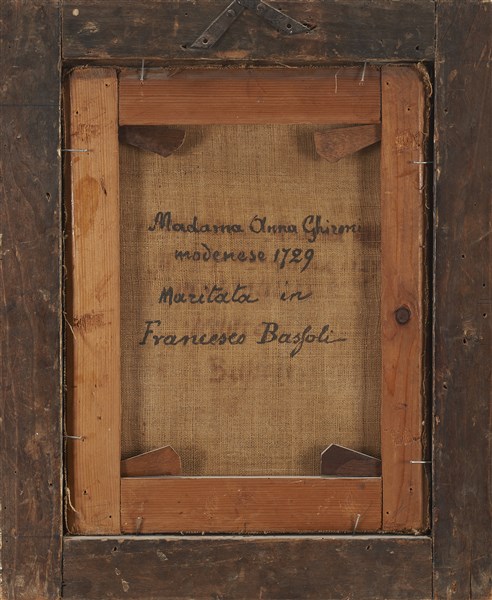 Madama Anna Ghironi
modenese 1729
Maritata in
Francesco Bassoli